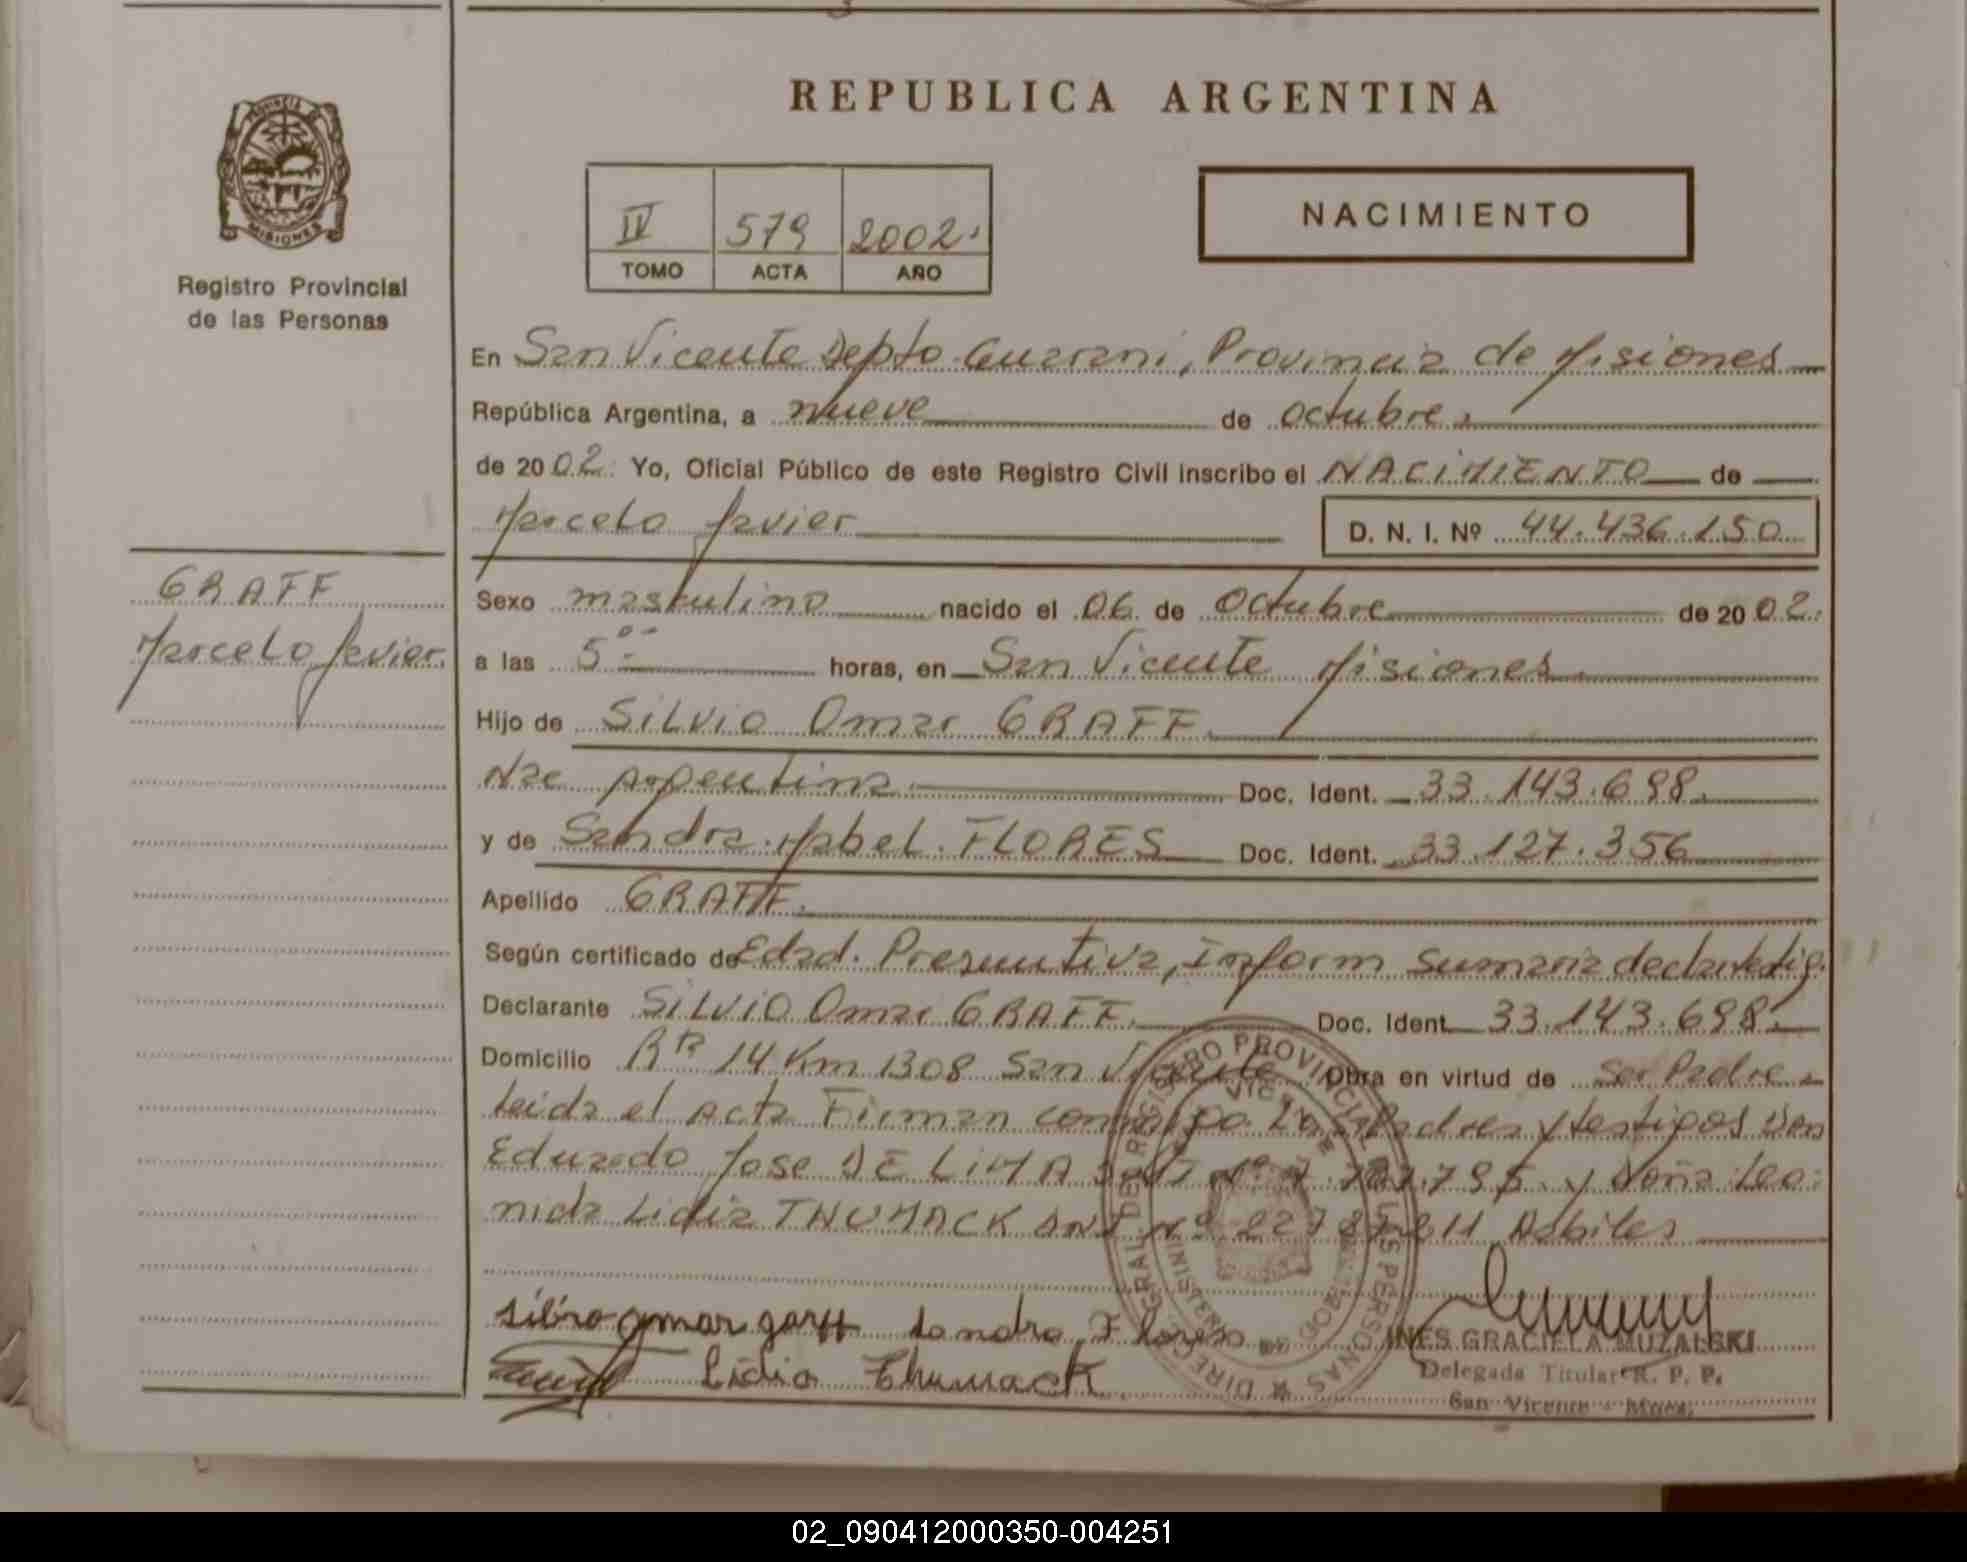 REPUBLICA ARGENTINA
MISIONES
Registro Provincial
de las Personas
IV 579 2002.
TOMO ACTA AÑO
NACIMIENTO
En San Vicente Depto Guarani, Provincia de Misiones
República Argentina, a nueve de octubre.
de 2002. Yo, Oficial Público de este Registro Civil inscribo el NACIMIENTO de
Marcelo Javier D. N. I. Nº 44.436.150
GRAFF
Marcelo Javier.
Sexo masculino nacido el 06 de Octubre de 2002.
a las 5 horas, en San Vicente Misiones.
Hijo de Silvio Omar GRAFF.
Nac Argentina. Doc. Ident. 33.143.698.
y de Sandra Mabel FLORES Doc. Ident. 33.127.356
Apellido GRAFF.
Según certificado de Edad. Presuntiva, Inform Sumaria
Declarante Silvio Omar GRAFF. Doc. Ident. 33.143.698.
Domicilio Rta 14 Km 1308 San Vicente Obra en virtud de Ser Padre.
Leida el Acta Firman conmigo Los Padres y testigos Don
Eduardo Jose DE LIMA DNI Nº y Doña Leo-
nida Lidia THUMACK DNI Nº Habiles
silvio omar garff sandra Flores
Lidia Thumack
INES GRACIELA MUZALSKI
Delegada Titular R. P. P.
San Vicente - Mnes.
DIREC. GRAL. DEL REGISTRO PROVINCIAL DE LAS PERSONAS
02_090412000350-004251